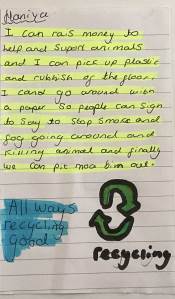 Haniya
I can rais money to
help and suport animals
and I can pick up plastic
and rubbish of the floor.
I cand go around with
a paper so people can sign
to say to stop smoke and
fog going around and
killing animal and finally
we can pit moa bins out.
All ways
recycling
good
recycling